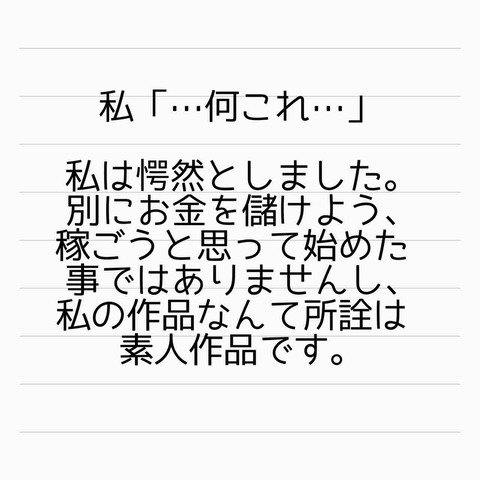 私「…何これ…」
私は愕然としました。
別にお金を儲けよう、
稼ごうと思って始めた
事ではありませんし、
私の作品なんて所詮は
素人作品です。